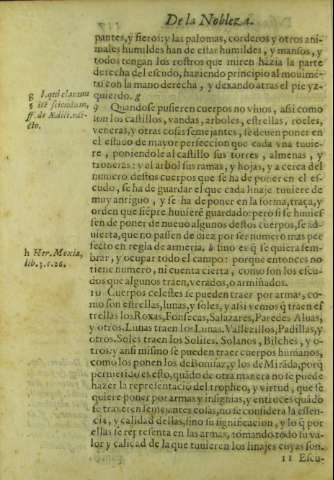 De la Nobleza.
pantes, y fieros: y las palomas, corderos y otros ani-
males humildes han de estar humildes, y mansos, y
todos tengan los rostros que miren hazia la parte
derecha del escudo, haziendo principio al mouimiẽ-
to con la mano derecha, y dexando atras el pie yz-
quierdo. g
g l. qui clauum
§ itē sciendum,
ff. de Ædili. edi-
cto.
9 Quando se pusieren cuerpos no viuos, assi como
son los castillos, vandas, arboles, estrellas, roeles,
veneras, y otras cosas semejantes, se deuen poner en
el estado de mayor perfeccion que cada vna tuuie-
re, poniendole al castillo sus torres, almenas, y
troneras: y al arbol sus ramas, y hojas, y a cerca del
numero destos cuerpos que se ha de poner en el es-
cudo, se ha de guardar el que cada linaje tuuiere de
muy antiguo, y se ha de poner en la forma, traça, y
orden que siẽpre huuierē guardado: pero si se huuies-
sen de poner de nuevo algunos destos cuerpos, se ad-
uierta, que no passen de diez por ser numero mas per
fecto en regla de armeria, h sino es q̃ se quiera sem-
h Her. Mexia,
lib. 3. c. 26.
brar, y ocupar todo el campo: porque entonces no
tiene numero, ni cuenta cierta, como son los escu-
dos que algunos traen, verados, o armiñados.
10 Cuerpos celestes se pueden traer por armas, co-
mo son estrellas, lunas, y soles, y assi vemos q̃ traen es
trellas los Roxas, Fonsecas, Salazares, Paredes Aluas,
y otros. Lunas traen los Lunas. Vallezillos, Padillas, y
otros. Soles traen los Solises, Solanos, Bilches, y o-
tros: y ansi mismo se pueden traer cuerpos humanos,
como los ponen los de Bonifaz, y los de Mirãda, porq̃
permitido es esto, quãdo de otra manera no se puede
hazer la representaciõ del tropheo, y virtud, que se
quiere poner por armas y insignias, y entonces quãdo
se traxerē semejantes cosas, no se considera la essen-
cia, y calidad dellas, sino su significacion, y lo q̃ por
ellas se representa en las armas, tomando todo su va-
lor y calidad de la que tuuieren los linajes cuyas son.
11 Escu-